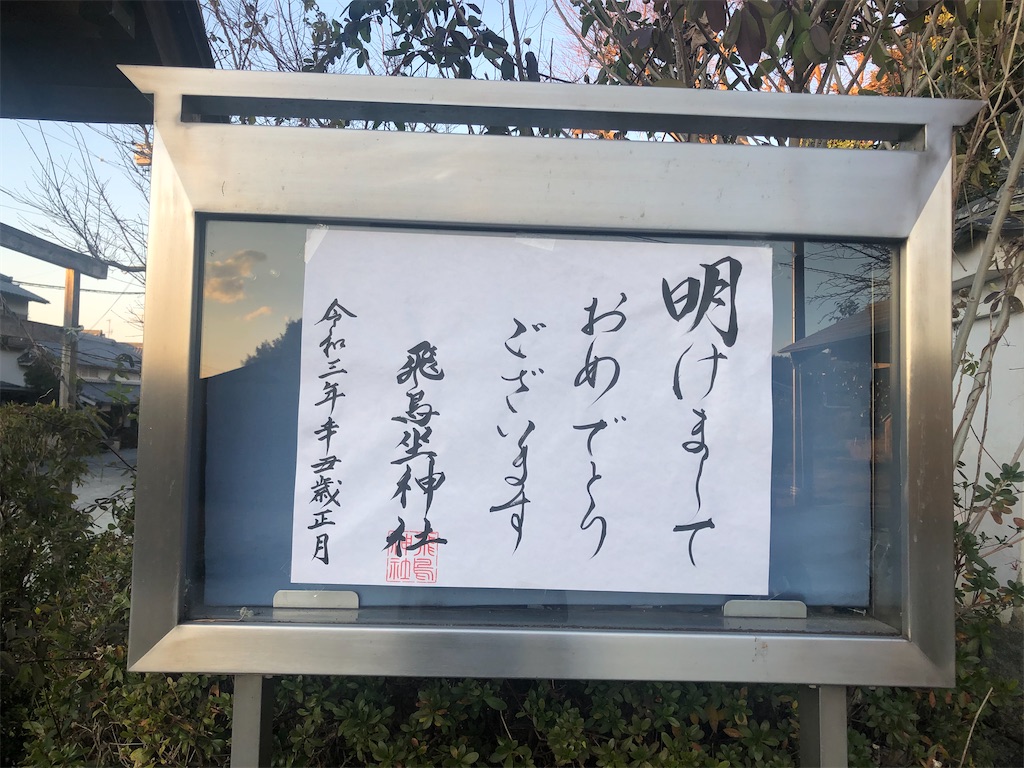 明けまして
おめでとう
ございます
飛鳥坐神社
令和三年辛丑歳正月
飛鳥
神社